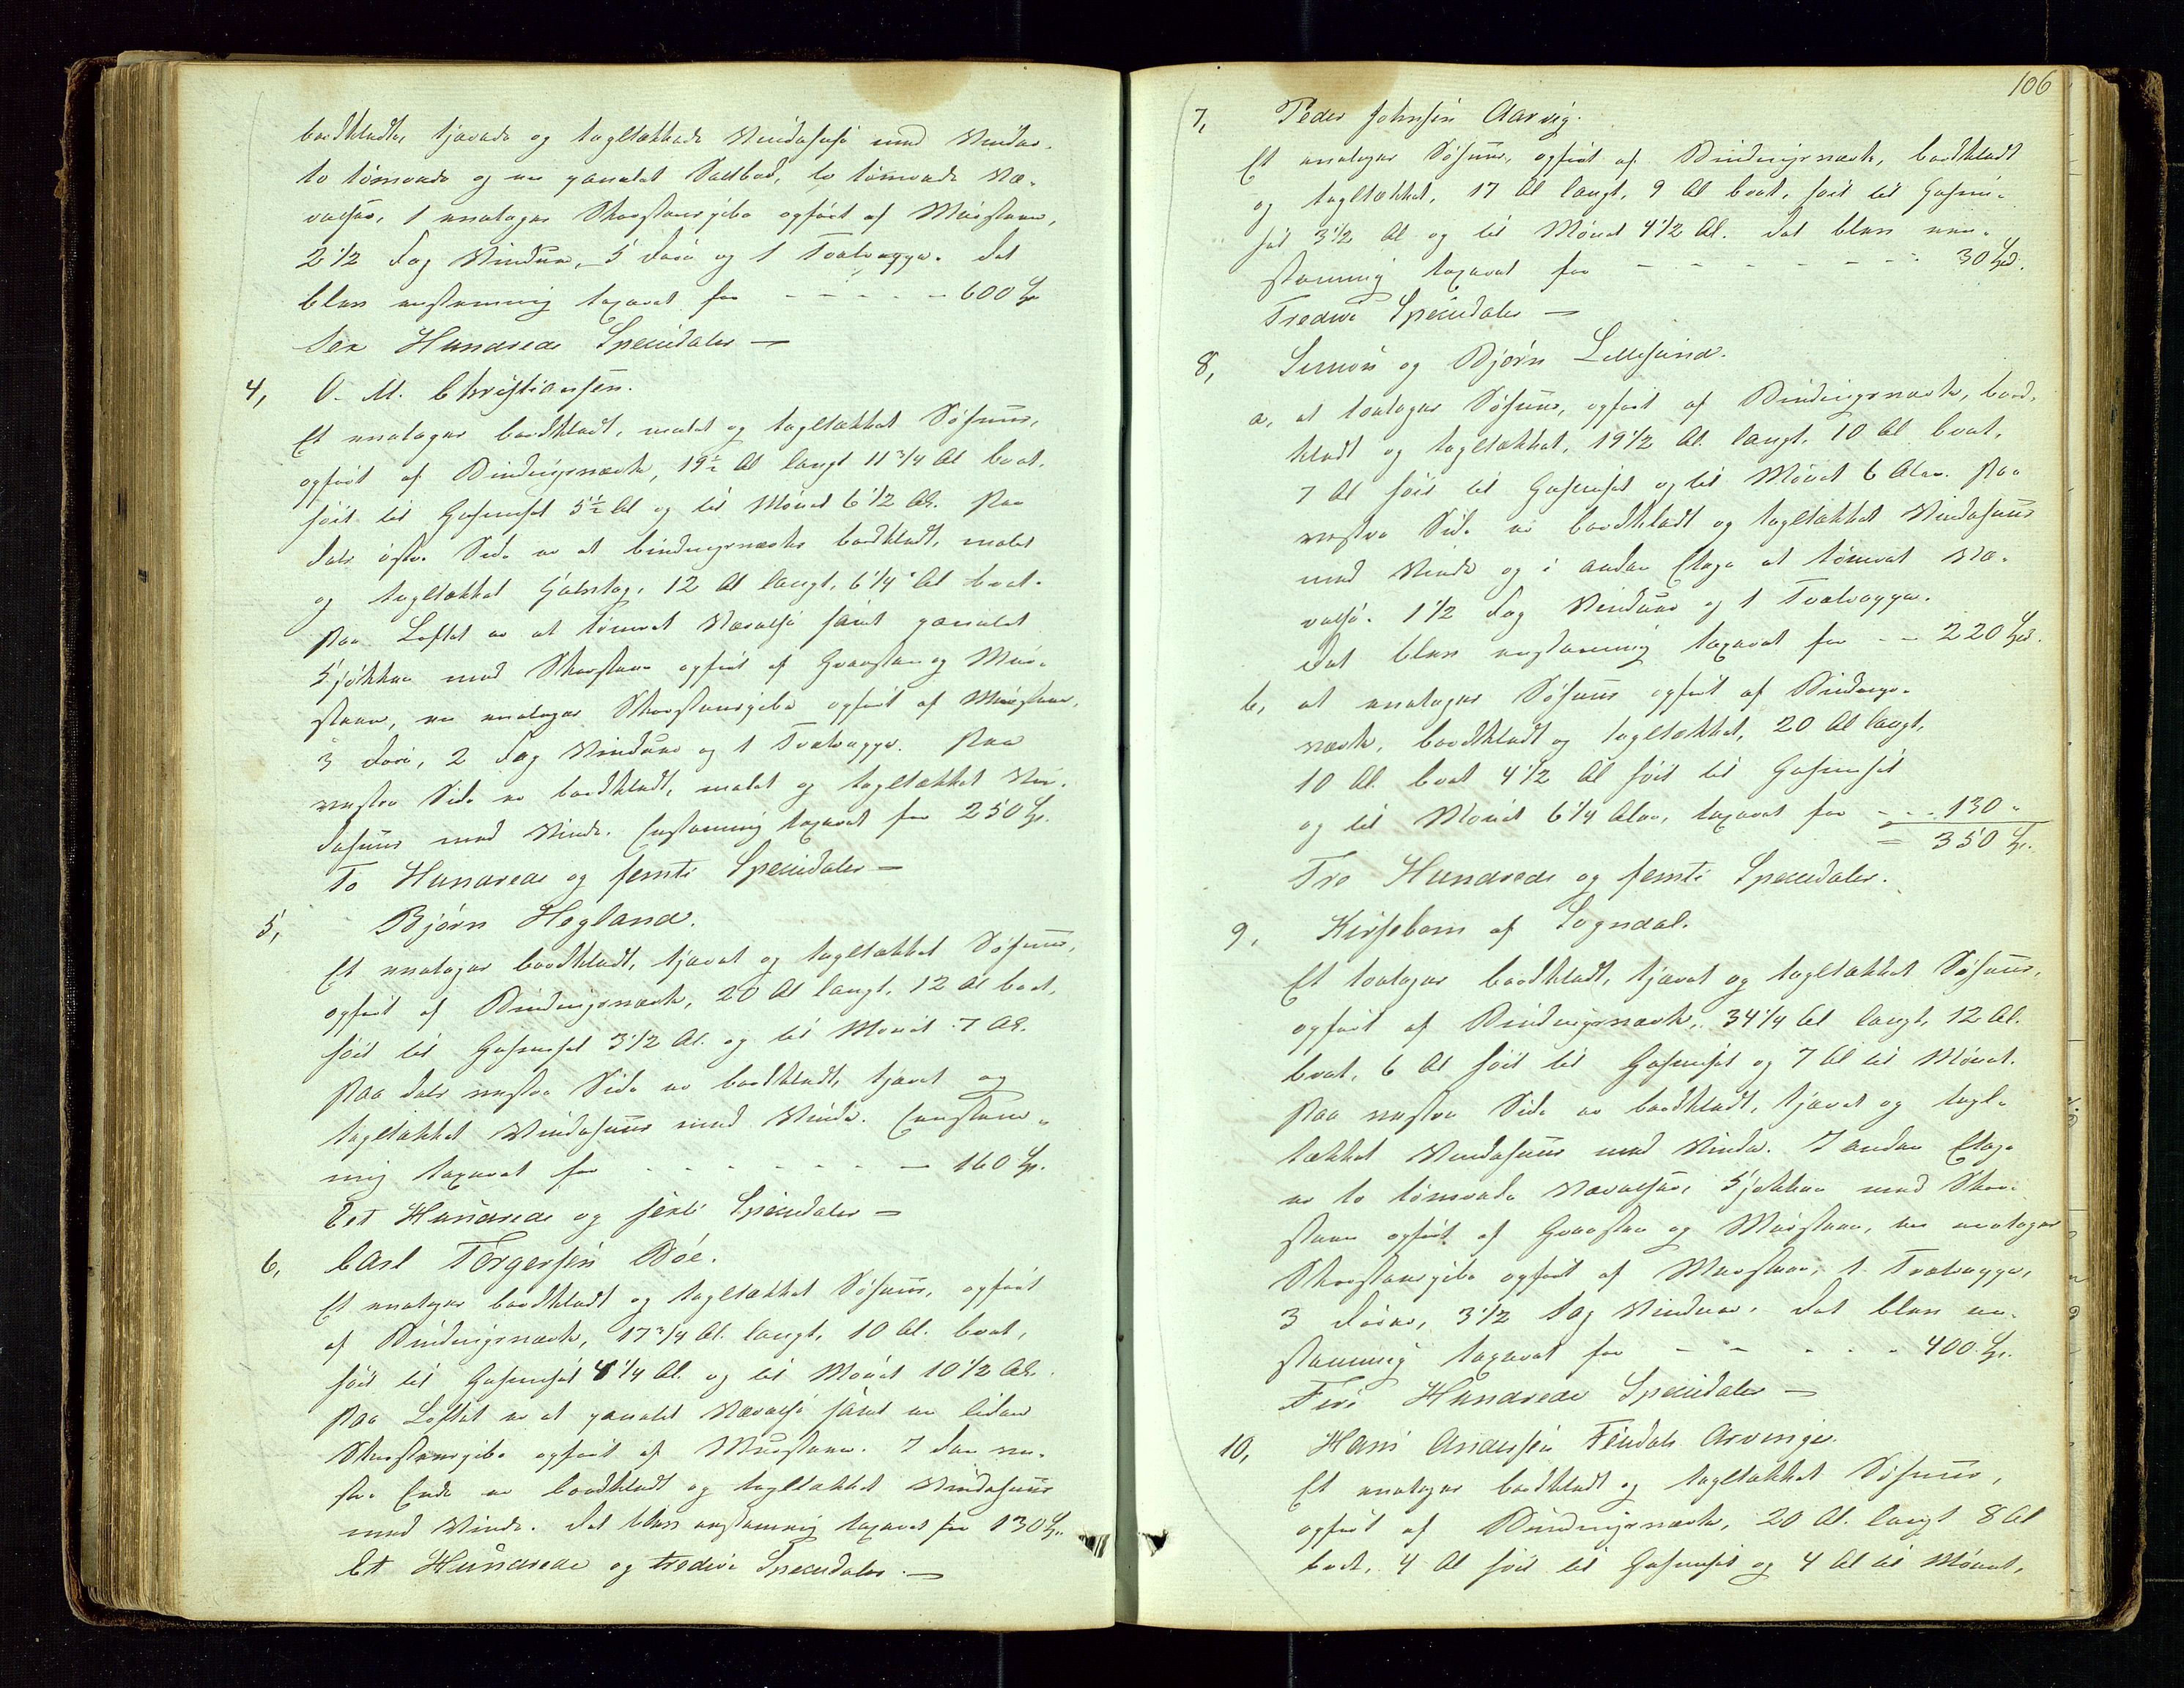 bordklædte, tjærede og tagltækkede Vindehuse med Vinder.
to tømrede og en panelet Saltbod, to tømrede Væ-
relser, 1 enetages Skorstenspibe opført af Mursteen,
2 1/2 Fag Vinduer, 5 Døre og 1 Trætrappe. Det
blev enstemmig taxeret for - - - - - 600 Sp
Sex Hundrede Speciedaler —
4, O. M. Christiansen.
Et enetages bordklædt, malet og tagltækket Søhuus,
opført af Bindingsværk, 19 1/2 Al langt 11 3/4 Al bredt.
høit til Gesimset 5 1/2 Al og til Mønet 6 1/2 Al. Paa
dets østre Side er et bindingsværks bordklædt, malet
og tagltækket Halvtag, 12 Al langt, 6 1/4 Al bredt.
Paa Loftet er et tømret Værelse samt panelet
Kjøkken med Skorsteen opført af Graasteen og Mur-
steen, en enetages Skorstenspibe opført af Mursteen,
3 Døre, 2 Fag Vinduer og 1 Trætrappe. Paa
vestre Side er bordklædt, malet og tagltækket Vin-
dehuus med Vinde. Enstemmig taxeret for 250 Sp.
To Hundrede og femti Speciedaler —
5, Bjørn Hegland.
Et enetages bordklædt, tjæret og tagltækket Søhuus,
opført af Bindingsværk, 20 Al langt, 12 Al bredt,
høit til Gesimset 3 1/2 Al. og til Mønet 7 Al.
Paa dets vestre Side er bordklædt, tjæret og
tagltækket Vindehuus med Vinde. Enstem-
mig taxeret for - - - - - - - 160 Sp.
Eet Hundrede og sexti Speciedaler —
6, Carl Torgersen Bøe.
Et enetages bordklædt og tagltækket Søhuus, opført
af Bindingsværk, 17 3/4 Al. langt, 10 Al. bredt,
høit til Gesimset 4 1/4 Al. og til Mønet 10 1/2 Al.
Paa Loftet er et panelet Værelse samt en liden
Skorstenspibe opført af Mursteen. I den ve-
stre Ende er bordklædt og tagltækket Vindehuus
med Vinde. Det blev enstemmig taxeret for 130 Sp.
Et Hundrede og tredive Speciedaler. —
106
7, Peder Johnsen Aarvig.
Et enetages Søhuus, opført af Bindingsværk, bordklædt
og tagltækket, 17 Al langt, 9 Al bredt, høit til Gesim-
set 3 1/2 Al og til Mønet 4 1/2 Al. Det blev een-
stemmig taxeret for - - - - - - - 30 Spd.
Tredive Speciedaler —
8, Simon og Bjørn Lillesund.
a, et toetages Søhuus, opført af Bindingsværk, bord-
klædt og tagltækket, 19 1/2 Al. langt, 10 Al bredt,
7 Al høit til Gesimset og til Mønet 6 Alen. Paa
vestre Side er bordklædt og tagltækket Vindehuus
med Vinde og i anden Etage et tømret Væ-
relse. 1 1/2 Fag Vinduer og 1 Trætrappe.
Det blev enstemmig taxeret for - - 220 Spd.
b, et enetages Søhuus opført af Bindings-
værk, bordklædt og tagltækket, 20 Al langt,
10 Al. bredt 4 1/2 Al høit til Gesimset
og til Mønet 6 1/4 Alen, taxeret for - - - 130 "
= 350 Sp.
Tre Hundrede og femti Speciedaler.
9, Kirsebom af Sogndal.
Et toetages bordklædt, tjæret og tagltækket Søhuus,
opført af Bindingsværk, 34 1/4 Al langt, 12 Al.
bredt, 6 Al høit til Gesimset og 7 Al til Mønet.
Paa vestre Side er bordklædt, tjæret og tagl-
tækket Vindehuus med Vinde. I anden Etage
er to tømrede Værelser, Kjøkken med Skor-
steen opført af Graasteen og Mursteen, en enetages
Skorstenspibe opført af Mursteen, 1 Trætrappe,
3 Døre, 3 1/2 Fag Vinduer. Det blev en-
stemmig taxeret for - - - - - 400 Sp.
Fire Hundrede Speciedaler —
10, Hans Andersen Feidals Arvinger.
Et enetages bordklædt og tagltækket Søhuus,
opført af Bindingsværk, 20 Al. langt 8 Al
bredt, 4 Al høit til Gesimset og 4 Al til Mønet,